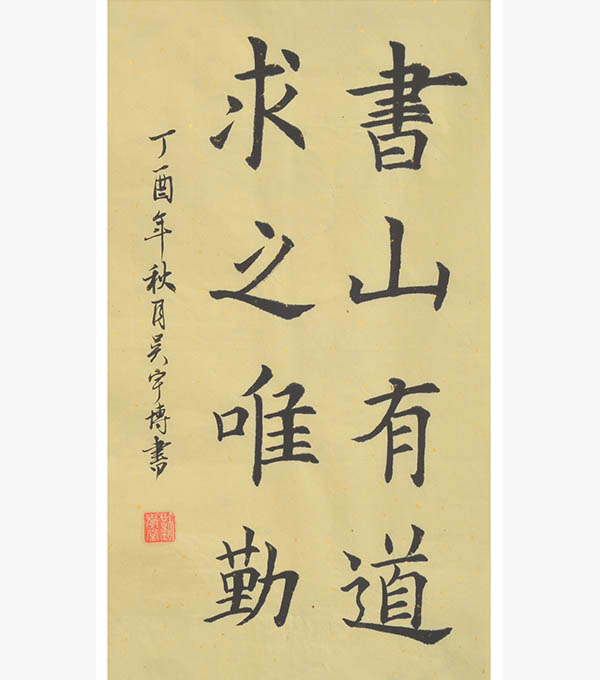 書山有道
求之唯勤
丁酉年秋月吴宇博書